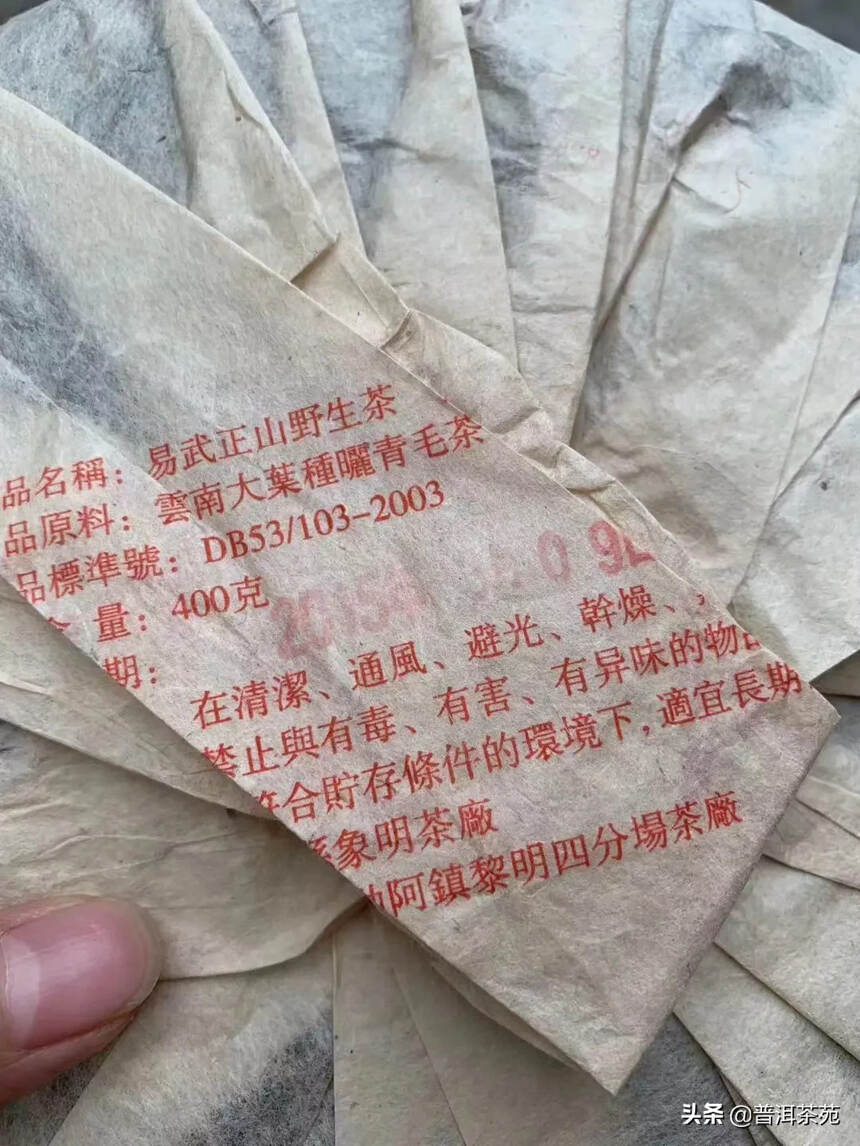 品名稱：易武正山野生茶
品原料：雲南大葉種曬青毛茶
品標準號：DB53/103-2003
量：400克
期：
在清潔、通風、避光、幹燥、
禁止與有毒、有害、有异味的物
符合貯存條件的環境下，適宜長期
象明茶廠
阿鎮黎明四分場茶廠
头条 @普洱茶苑